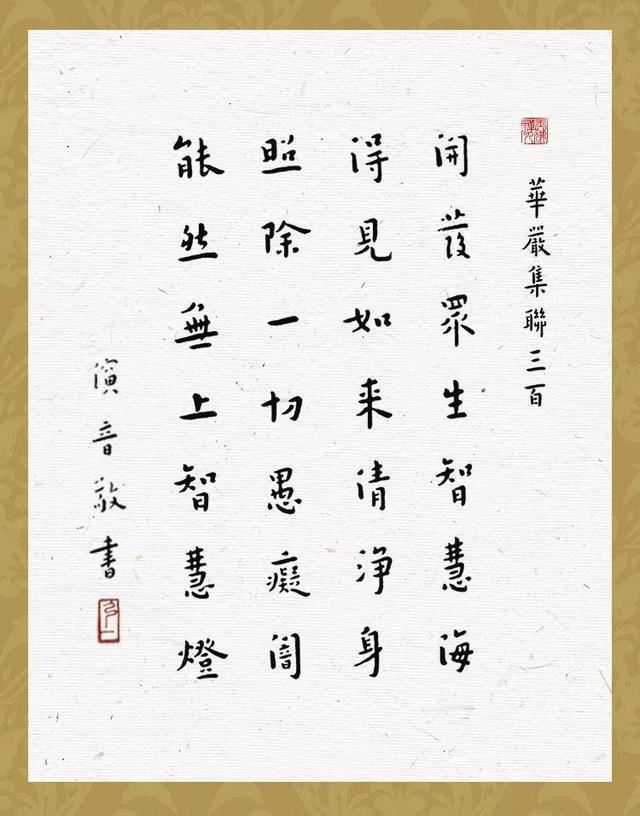 華嚴集聯三百
開發眾生智慧海
得見如来清淨身
照除一切愚癡闇
能然無上智慧燈
演音敬書